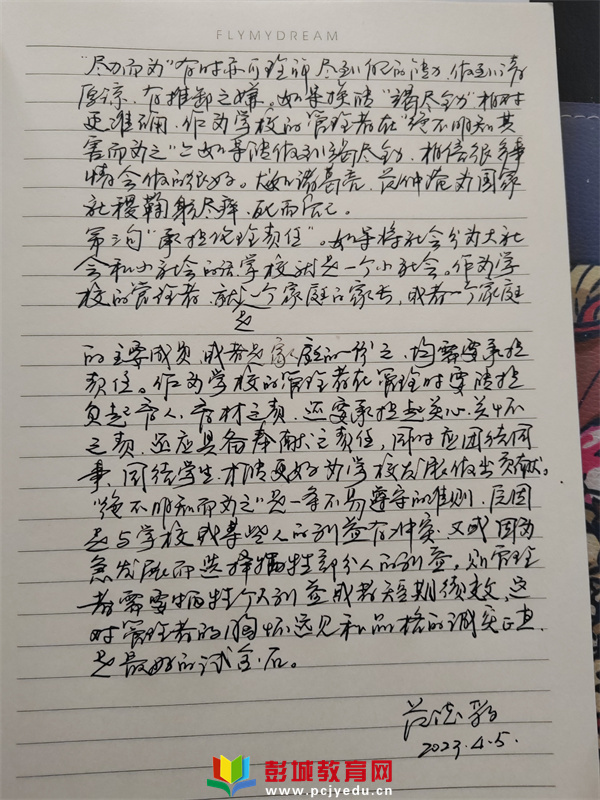 FLYMYDREAM
"尽力而为"有时亦可理解尽到自己的能力，做到
原谅，有推卸之嫌。如果换成"竭尽全力"相对
更准确，作为学校的管理者在"绝不明知其
害而为之"上如果能做到竭尽全力，相信很多事
情会做的很好。大如诸葛亮、范仲淹为国家
社稷鞠躬尽瘁，死而后已。
第三句"承担伦理责任"。如果将社会分为大社
会和小社会的话，学校就是一个小社会。作为学
校的管理者，就是一个家庭的家长，或者一个家庭
的主要成员，或者是家庭的一份之，均需要承担
责任。作为学校的管理者在管理时要能担
负起育人、育材之责，还要承担起关心、关怀
之责，还应具备奉献之责任，同时应团结同
事、团结学生，才能更好为学校发展做出贡献。
"绝不明知而为之"是一条不易遵守的准则，原因
是与学校或某些人的利益有冲突，又或因为
急发展而选择牺牲部分人的利益，则管理
者需要牺牲个人利益或者短期绩效，这
对管理者的胸怀远见和品格的诚实正直
是最好的试金石。
2023.4.5.
彭城教育网
www.pcjyedu.cn